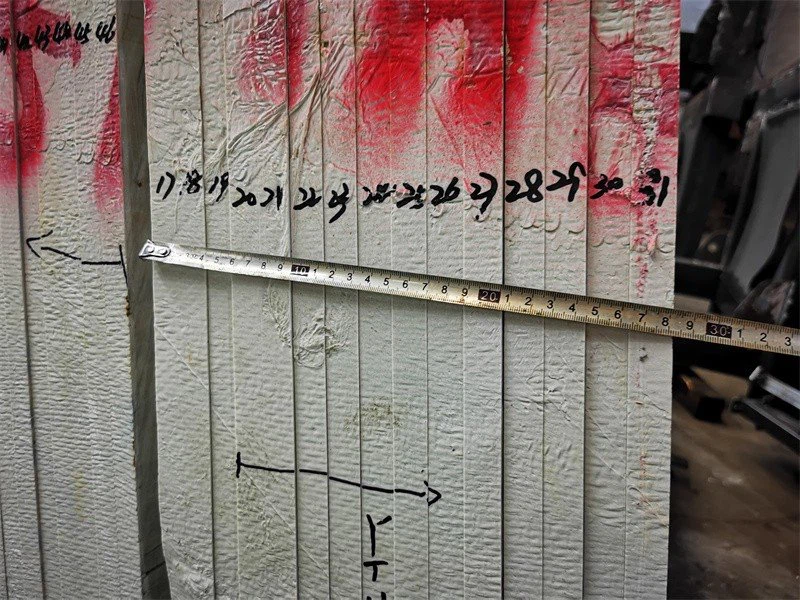 43 44 45 46
17 18 19 20 21 22 23 24 25 26 27 28 29 30 31
4 5 6 7 8 9 10 1 2 3 4 5 6 7 8 9 20 1 2 3 4 5 6 7 8 9 30 1 2 3